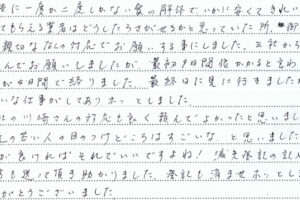 に一度か二度しかない家の解体でいかに安くてきれい
てもらえる業者はどうしたらさがせるかと思っていた所、
親切な の対応でお願いする事にしました。 社から
んでお願いしましたが、最初 日間位かかると言わ
が 日間で終りました。最終日に見に行きましたが
いな仕事がしてありホッとしました。
の川崎さんの対応も良く頼んでよかったと思いまし
の若い人の目のつけどころはすごいな と思いました
が良ければそれでいいですよね! 滅失登記の記入
も送って頂き助かりました。登記も済ませホッとしま
がとうございました